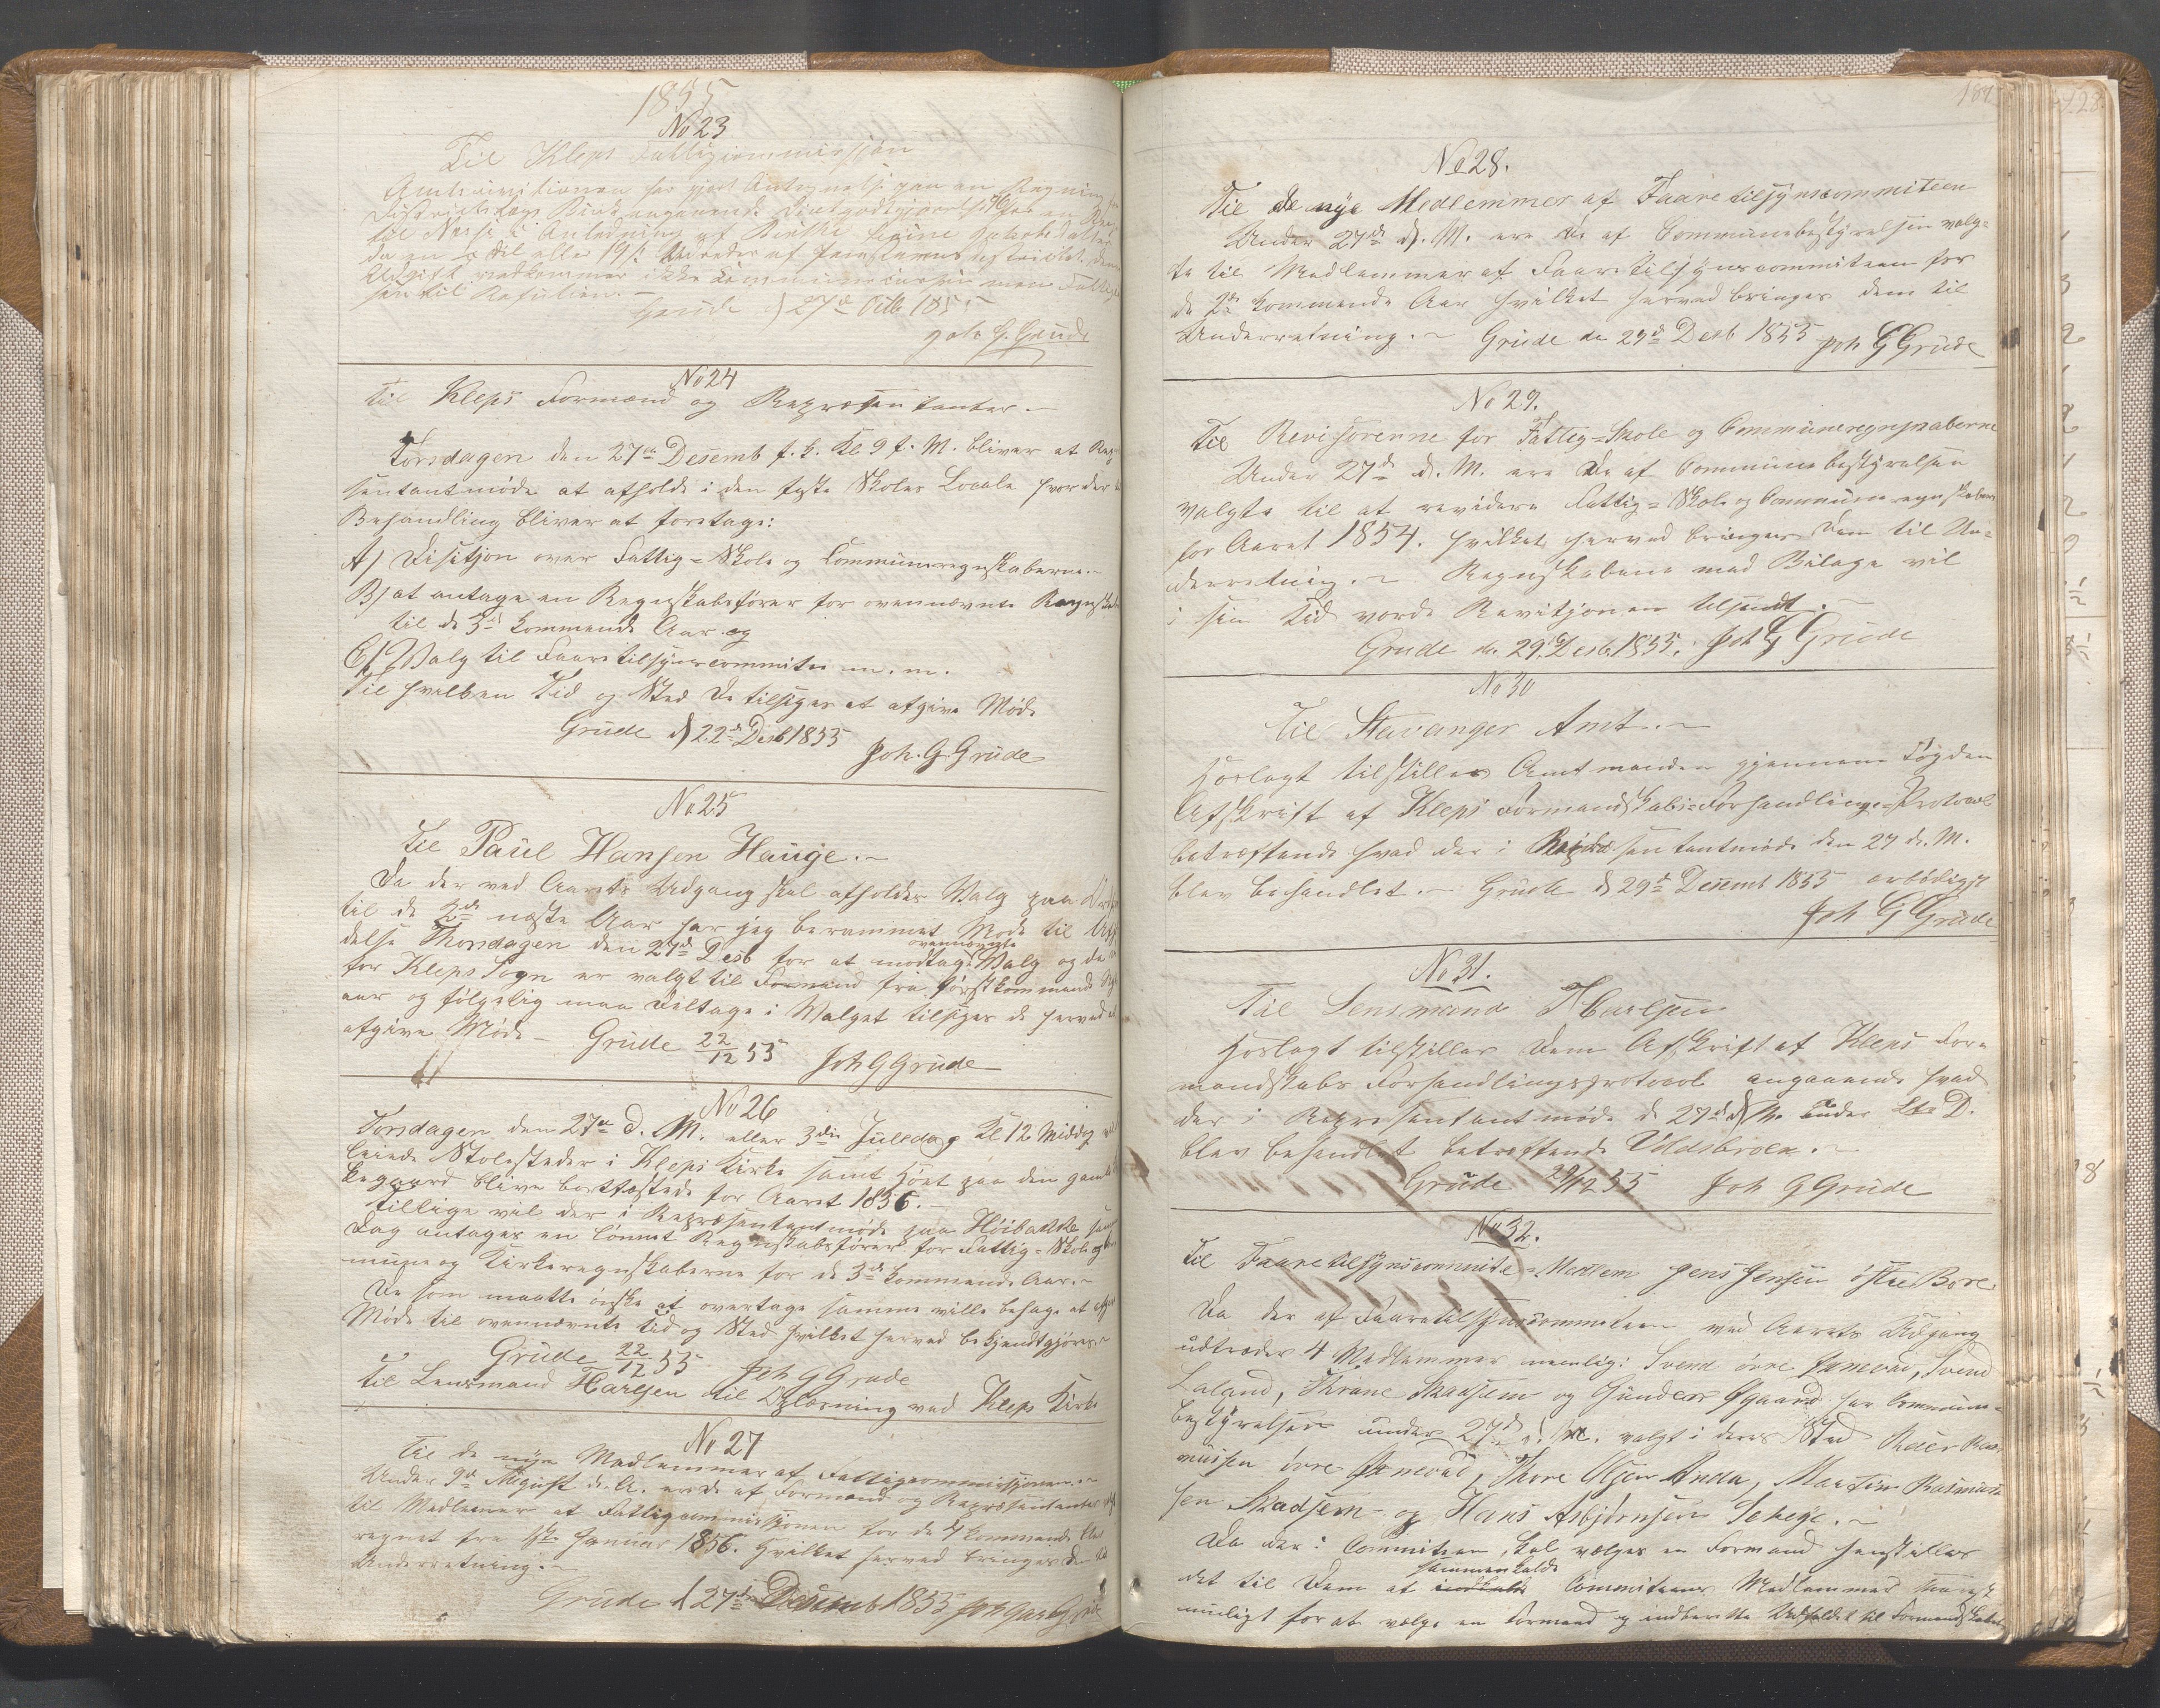 1855
No 23
Til Kleps Fattigcommission
Amtsrevisionen har gjort Antegnelse paa en Regning
til Kleps Anledning af
da en
Udgift vedkommer ikke Communecassen men Fattig
sen til Refusion. –
Grude d 27de Octb 1855
Joh. G. Grude
No 24
Til Kleps Formænd og Repræsentanter. –
Torsdagen den 27de Desemb f. k. Kl 9 f. M. bliver et Rep
sentantmøde at afholde i den faste Skoles Locale hvor der
Behandling bliver at foretage:
A) Disitjon over Fattig= Skole og Communeregnskaberne. –
B) at antage en Regnskabsfører for ovennævnte Regnskab
til de 3de kommende Aar og
C) Valg til Faaretilsynscommitee m. m.
Til hvilken Tid og Sted De tilsiges at afgive Møde
Grude d 22de Desb 1855
Joh. G. Grude
No 25
Til Paul Hansen Hauge. –
Da der ved Aarets Udgang skal afholdes Valg paa
til de 2de næste Aar har jeg berammet Mode til
delse Thorsdagen den 27de Desb for at modtage ovennævnte Valg og da
for Kleps Sogn er valgt til Formand fra førstkommende
aar og følgelig maa deltage i Valget tilsiges de herved
afgive Møde – Grude 22/12 55 Joh G Grude
No 26
Torsdagen den 27de d. M. eller 3die Juledag Kl 12 Middag
leiede Stolesteder i Kleps Kirke samt Høet paa den gamle
kegaard blive bortfæstede for Aaret 1856. –
tillige vil der i Repræsentantmøde paa Höibakke samme
Dag antages en lønnet Regnskabsfører for Fattig= Skole og
mune og Kirkeregnskaberne for de 3de kommende Aar. –
De som maatte ønske at overtage samme ville behage at afgive
Møde til ovennævnte tid og Sted hvilket herved bekjendtgjøres –
Grude 22/12 55 Joh G Grude
Til Lensmand Harlsen til Oplæsning ved Kleps Kirke
No 27
Til de nye Medlemmer af Fattigcommissionen. –
Under 9de August d. A. er De af Formænd og Repræsentanter
til Medlemer af Fattigcommissionen for de 4 kommende Aar
regnet fra 1ste Januar 1856. Hvilket herved bringes Dem til
Underretning. –
Grude d 27de Desemb 1855 Joh G Grude
181
No 28.
Til de nye Medlemmer af Faaretilsynscommiteen
Under 27de d. M. ere De af Communebestyrelsen valg=
te til Medlemmer af Faaretilsynscommiteen for
de 2de kommende Aar hvilket herved bringes dem til
Underretning. – Grude de 29de Desb 1855 Joh G Grude
No 29.
Til Revisorerne for Fattig= Skole og Communeregnskaberne
Under 27de d. M. ere De af Communebestyrelsen
valgte til at revidere Fattig= Skole og Communeregnskaberne
for Aaret 1854. hvilket herved bringes Dem til Un=
derretning. – Regnskabene med Bilage vil
i sin Tid vorde Revitjonen tilsendt. –
Grude de 29de Desb 1855. Joh G Grude
No 30
Til Stavanger Amt. –
Hoslagt tilstilles Amtmanden gjennem Fogden
Afskrift af Kleps Formandskabs=Forhandlings=Protocol
betræffende hvad der i Repræsentantmøde den 27 d. M.
blev behandlet. – Grude d 29de Desemb 1855 ærbødigst
Joh G Grude
No 31.
Til Lensmand Harlsen
Hoslagt tilstilles Dem Afskrift af Kleps For=
mandskabs Forhandlingsprotocol angaaende hvad
der i Repræsentantmøde d 27de d. M. under Ltr D.
blev behandlet betræffende Voldsbroen. –
Grude 29/12 55 Joh G Grude
No 32.
Til Faaretilsynscommite=Medlem Jens Jensen östre Bore
Da der af Faaretilsynscommiteen ved Aarets Udgang
udtræder 4 Medlemmer nemlig: Svend övre Jonevad, Svend
Laland, Thrane Skaasem og Gunder Øgaard har Commune=
bestyrelsen under 27de d. M. valgt i deres Sted Ras=
mussen övre Jonevad, Thore Olsen Anda, Martin Rasmus
sen Skadsem og Hans Asbjörnsen Sehege. –
Da der i Commiteen skal vælges en Formand henstilles
det til Dem at sammenkalde Commiteens Medlemmer snarest
muligt for at vælge en Formand og indberette Udfaldet til Formandskabet